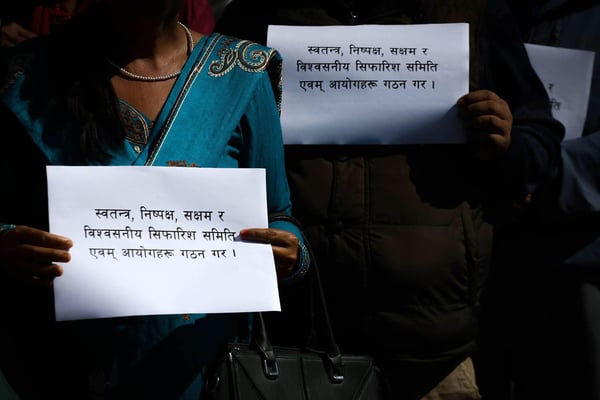 स्वतन्त्र, निष्पक्ष, सक्षम र
विश्वसनीय सिफारिश समिति
एवम् आयोगहरू गठन गर ।
स्वतन्त्र, निष्पक्ष, सक्षम र
विश्वसनीय सिफारिश समिति
एवम् आयोगहरू गठन गर ।